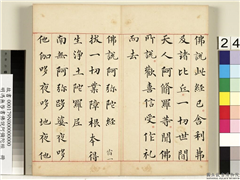 佛說此經已舍利弗
及諸比丘一切世間
天人阿脩羅等聞佛
所說歡喜信受作禮
而去
佛說阿弥陀經
拔一切業障根本得
生淨土陀羅尼
南無阿弥哆婆夜
他伽哆夜哆地夜他